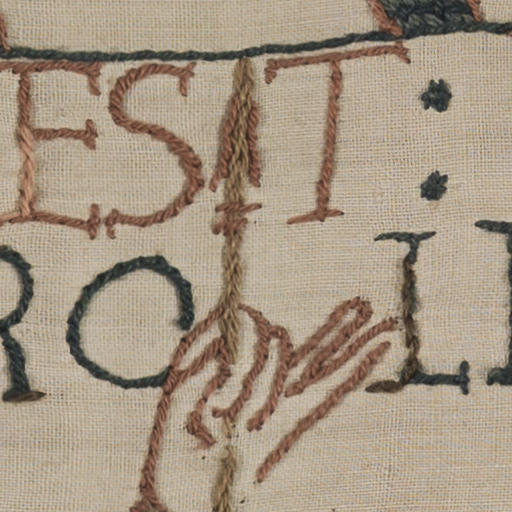 EST :
ROL